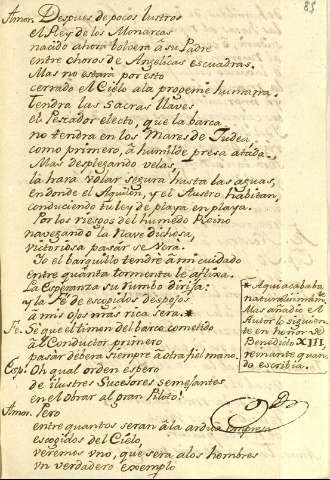 85
Amor. Despues de pocos lustros
el Rey de los Monarcas
nacido ahora bolverà à su Padre
entre choros de Angelicas escuadras.
Mas no estarà por esto
cerrado el Cielo ala progenie humana.
Tendrà las sacras llaves
el Pescador electo, que la barca
no tendra en los Mares de Judea,
como primero, à humilde presa atada.
Mas desplegando velas,
la harà volar segura hasta las aguas,
en donde el Aquilon, y el Austro habitan,
conduciendo su ley de playa en playa.
Por los riesgos del humedo Reino
navegando la Nave dichosa,
victoriosa pasar se verà.
Yo el barquillo tendrè à mi cuidado
entre quanta tormenta le aflixa.
La Esperanza su rumbo dirija:
y la Fè de escogidos despojos
à mis ojos mas rica serà.*
Fè. Sè que el timon del barco cometido
àl Conductor primero
pasar deberà siempre à otra fiel mano.
Esp. Oh qual orden espero
de ilustres Sucesores semejantes
en el obrar al gran Piloto!
Amor. Pero
entre quantos seràn à la ardua empresa
escogidos del Cielo,
veremos uno, que serà alos hombres
un verdadero exemplo
* Aqui acababa
naturalisiman.
Mas añadio el
Autor lo siguien-
te en honor de
Benedicto XIII,
reinante quan-
do escribia.